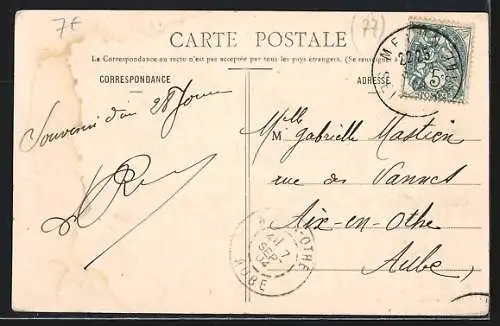 7F
(77)
CARTE POSTALE
La Correspondance au recto n'est pas acceptée par tous les pays étrangers. (Se renseigner à
CORRESPONDANCE
ADRESSE
Souvenir d'un 28 Jours
Mlle
M Gabrielle Mastien
rue des Vannes
Aix-en-Othe
Aube
-OTHE
7
SEPT
04
AUBE
5